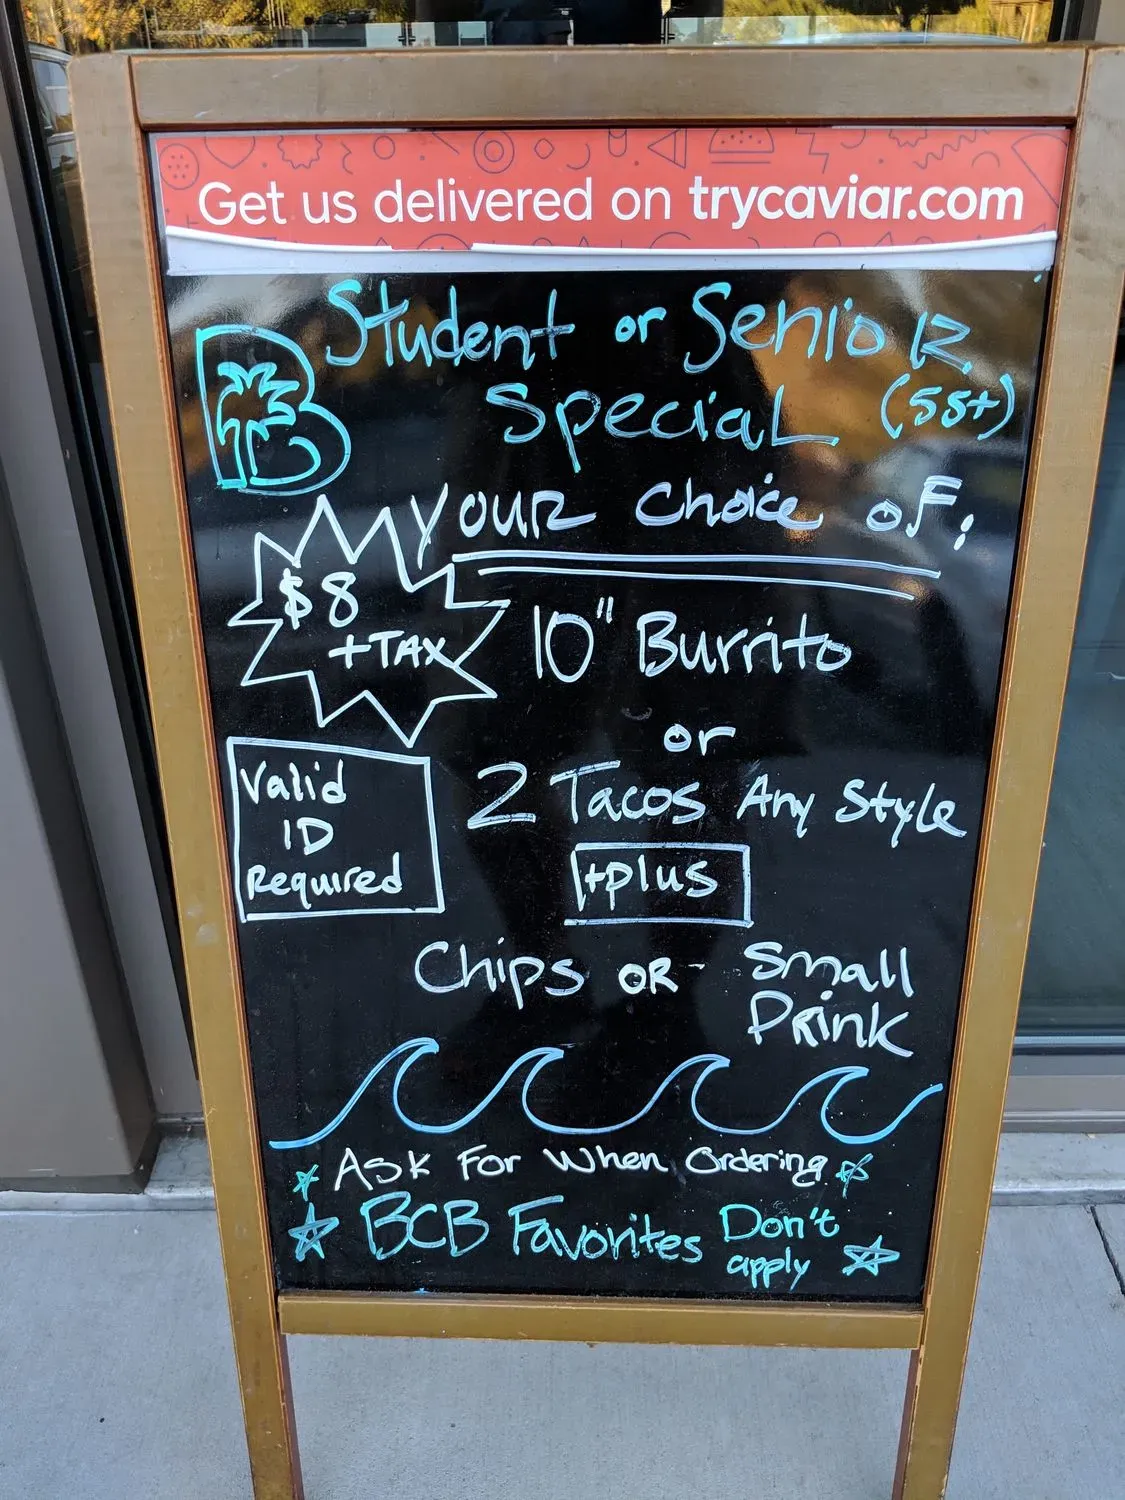 Get us delivered on trycaviar.com
B
Student or Senior
Special (55+)
Your Choice of:
$8
+TAX
10" Burrito
or
2 Tacos Any Style
Valid
ID
Required
+plus
Chips or Small
Drink
Ask For When Ordering
BCB Favorites Don't
apply